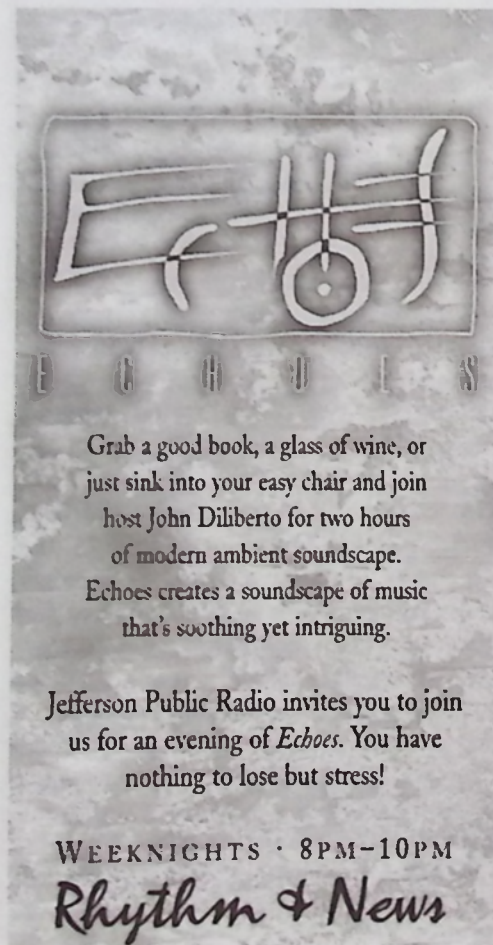 Echoes
ECHOES
Grab a good book, a glass of wine, or
just sink into your easy chair and join
host John Diliberto for two hours
of modern ambient soundscape.
Echoes creates a soundscape of music
that's soothing yet intriguing.
Jefferson Public Radio invites you to join
us for an evening of Echoes. You have
nothing to lose but stress!
WEEKNIGHTS · 8PM-10PM
Rhythm & News